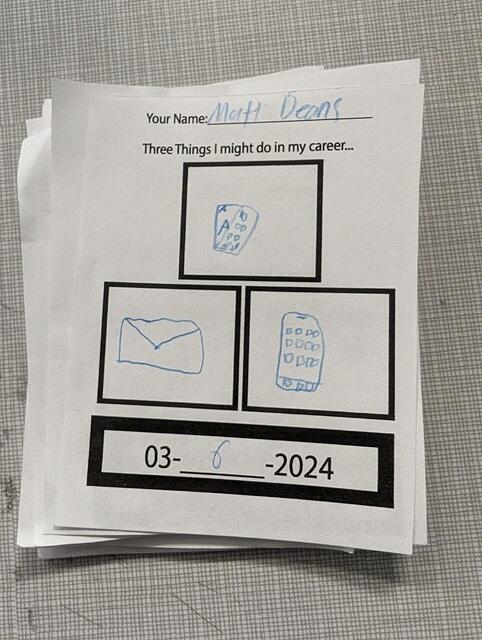 Your Name: Matt Deans
Three Things I might do in my career...
A
A
03- 6 -2024